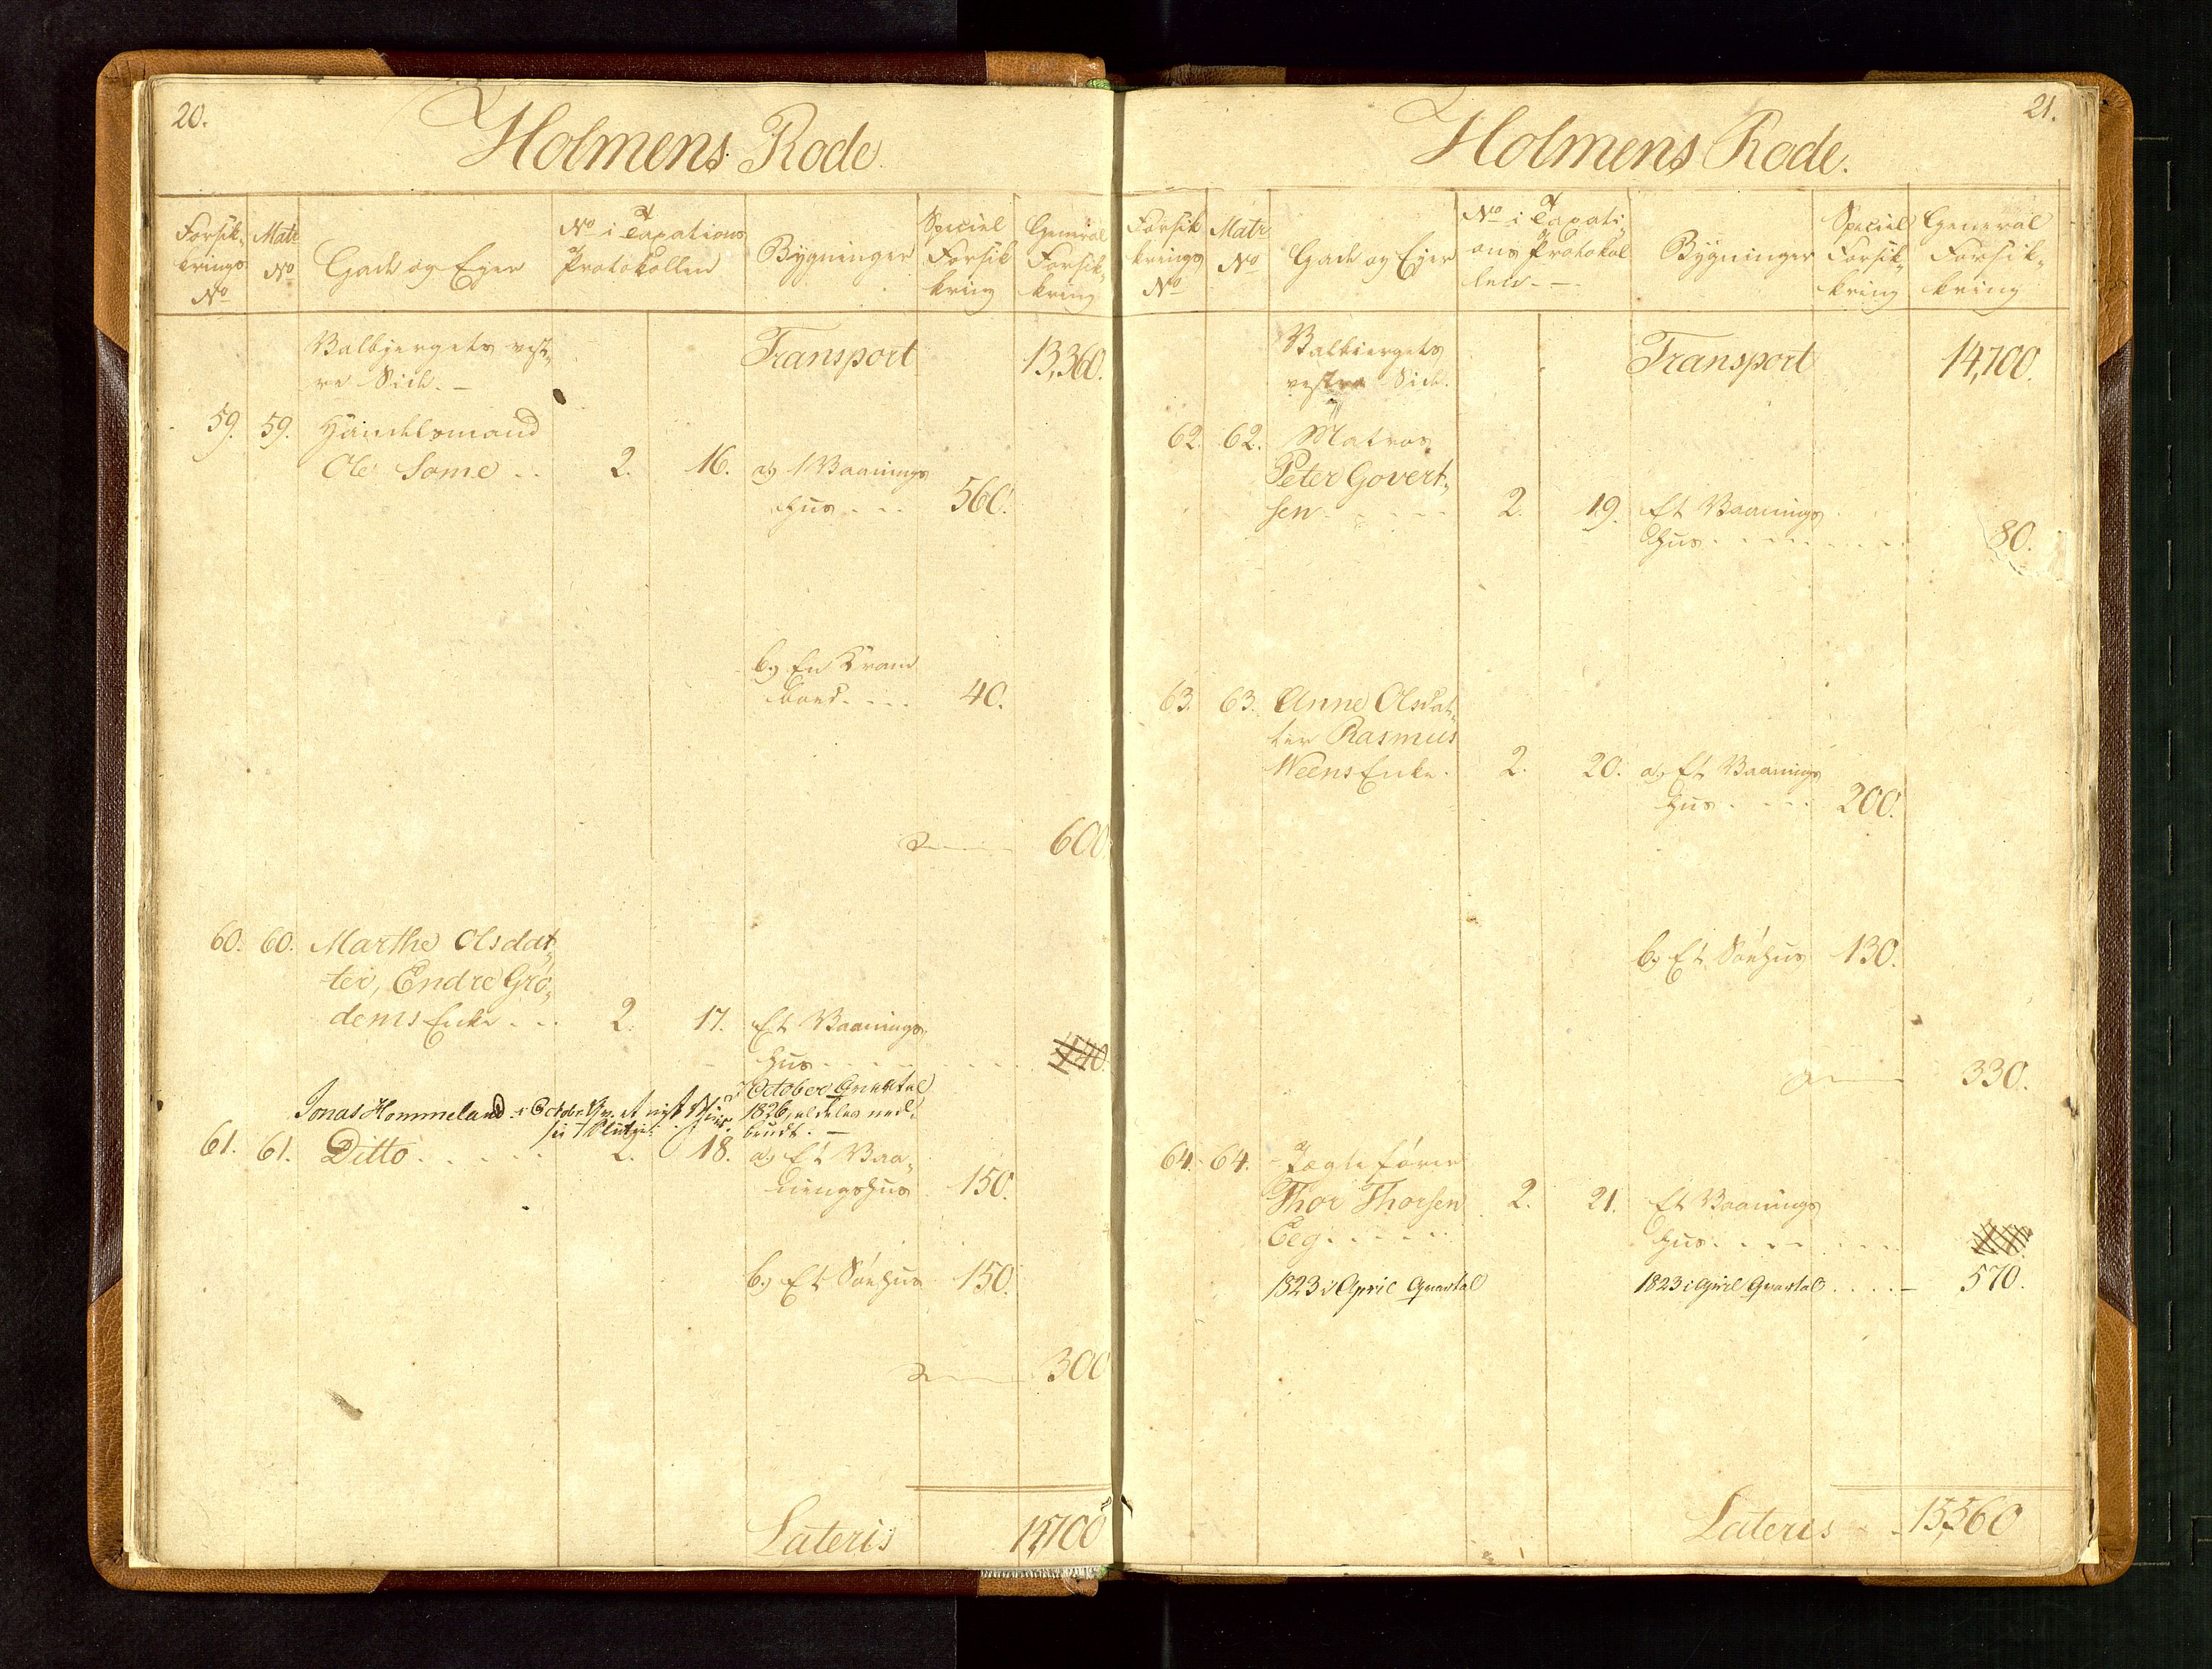 20.
Holmens Rode
Forsik-
krings
No
Matr
No
Gade og Eyer
No i Taxations
Protokollen
Bygninger
Speciel
Forsik
kring
General
Forsik-
kring
Valbjergets vest-
re Side. –
Transport 13,360.
59. 59. Handelsmand
Ole Some . . 2. 16. a, 1 Vaanings
huus . . . 560.
b, En Kram
boed . . . . 40.
600
60. 60. Marthe Olsdat,
ter, Endre Grö,
dems Enke . . . 2. 17. Et Vaanings
huus . . . . . .
October Quartal
1826, aldeles ned-
brudt. –
Jonas Hommeland i Octobr Qv. et nyt Huus.
61. 61. Ditto . . . . . 2. 18. a, Et Vaa-
ningshuus 150.
b, Et Söehuus 150.
300
Lateris 14,700
21.
Holmens Rode.
Forsik
krings
No
Matr
No
Gade og Eyer
No i Taxati-
ons Protokol
len. –
Bygninger
Speciel
Forsik-
kring
General
Forsik-
kring
Valbiergets
vestre Side.
Transport 14,700.
62. 62. Matros
Peter Govert,
sen . . . . . 2. 19. Et Vaanings
huus . . . . . . . . 80.
63. 63. Anne Olsdat,
ter Rasmus
Weens Enke. 2. 20. a, Et Vaanings
huus . . . . 200.
b, Et Söehuus 130.
330.
64. 64. Jægtefører
Thor Thorsen 2. 21. Et Vaanings
Eeg . . . . . huus . . . . . . .
1823 i April Quartal 1823 i April Quartal . . . . – 570.
Lateris 15,560